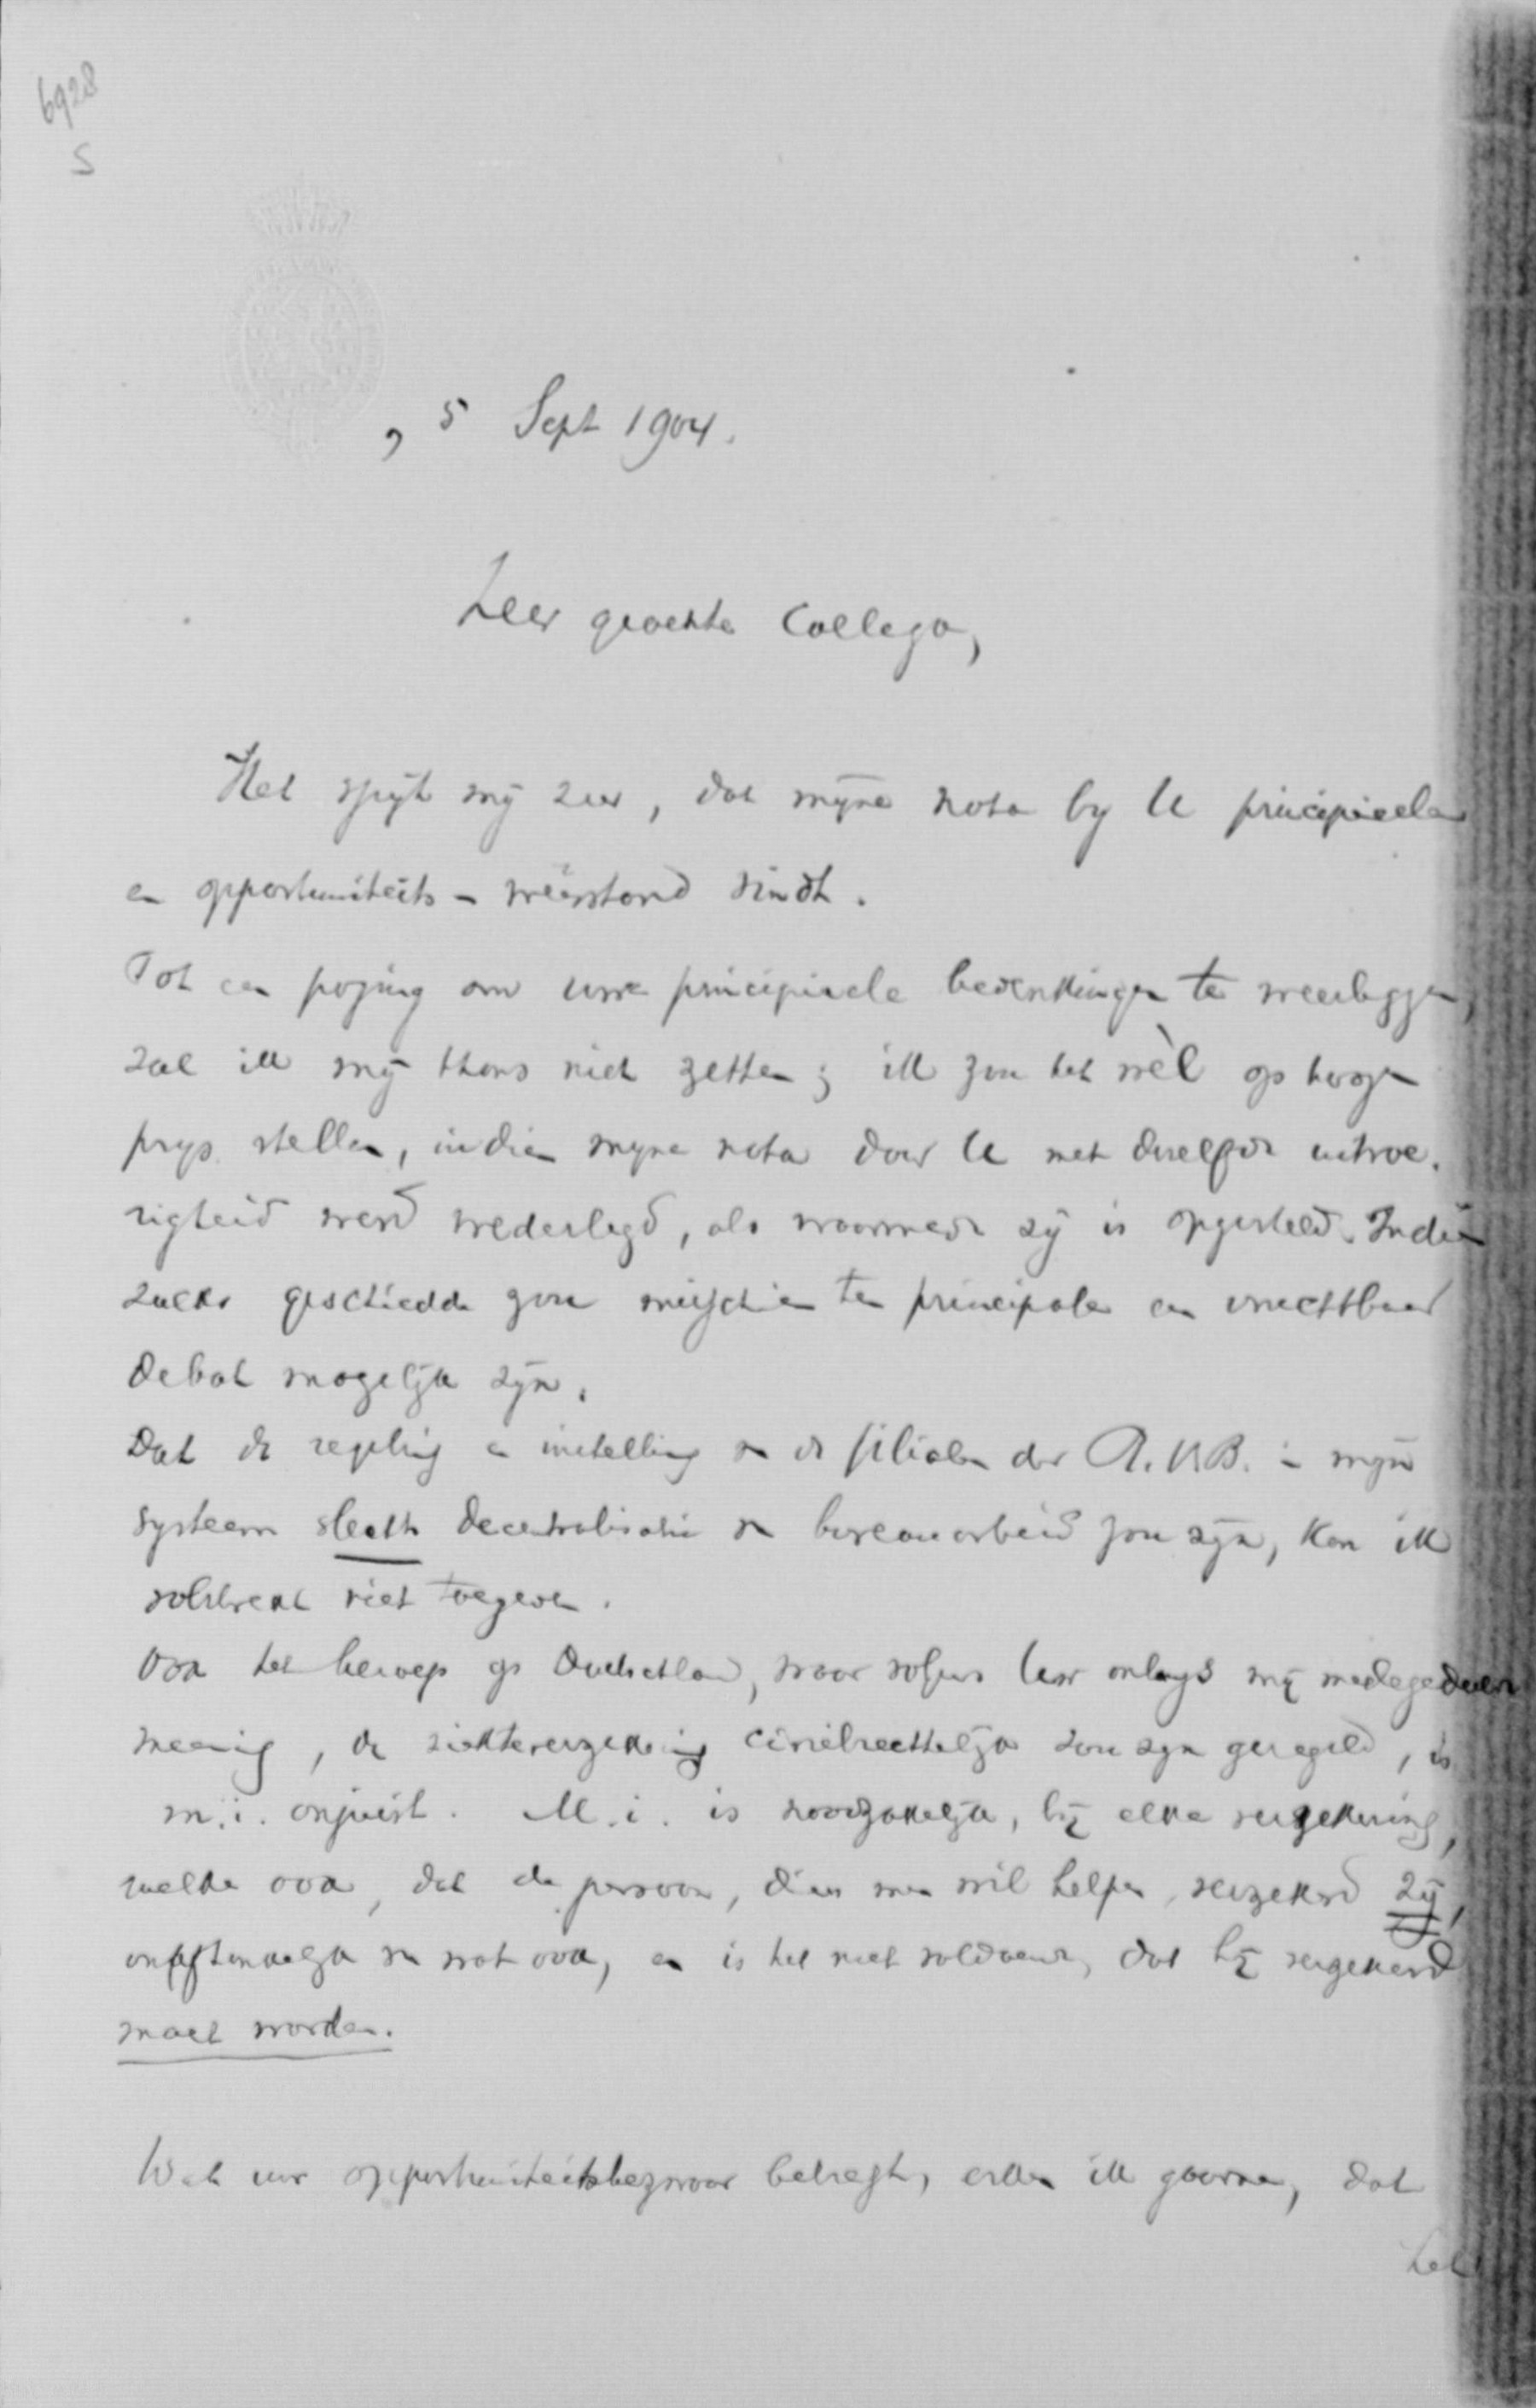 6928
S
, 5 Sept 1904.
Zeer geachte Collega,
Het spijt mij zeer, dat mijne nota bij U principieelen
en opportuniteits-weerstand vindt.
Tot een poging om uwe principieele bedenkingen te weerleggen,
zal ik mij thans niet zetten; ik zou het wèl op hoogen
prijs stellen, indien mijne nota door U met dezelfde uitvoe-
righeid werd wederlegd, als waarmede zij is opgesteld. Indien
zulks geschiedde zou misschien ten principale een vruchtbaar
debat mogelijk zijn.
Dat de regeling en instelling van de filialen der R.V.B. in mijn
systeem slechts decentralisatie van bureauarbeid zou zijn, kan ik
volstrekt niet toegeven.
Ook het beroep op Duitschland, waar volgens Uw onlangs mij medegedeelde
meening, de ziekteverzekering civielrechtelijk zou zijn geregeld, is
m.i. onjuist. M.i. is noodzakelijk, bij elke verzekering,
welke ook, dat de persoon, dien men wil helpen, verzekerd zij,
onafhankelijk van wat ook, en is het niet voldoende, dat hij verzekerd
moet worden.
Wat uw opportuniteitsbezwaar betreft, erken ik gaarne, dat
het